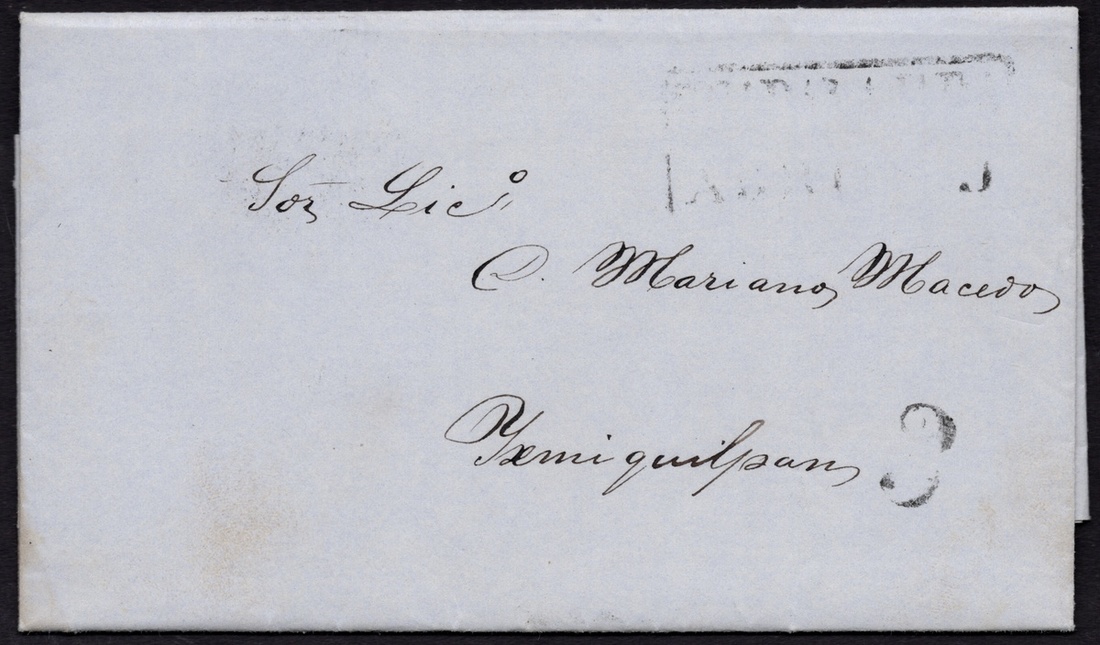 Sor Lic.º
D. Mariano Macedo
Yxmiquilpan